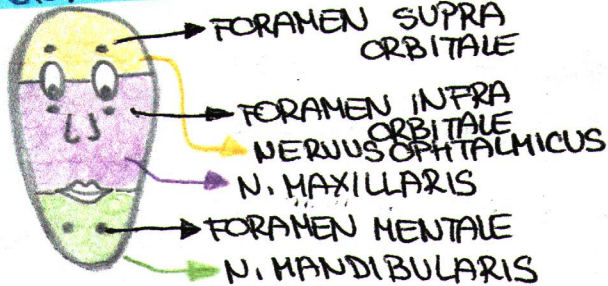 FORAMEN SUPRA
ORBITALE
FORAMEN INFRA
ORBITALE
NERVUS OPHTALMICUS
N. MAXILLARIS
FORAMEN MENTALE
N. MANDIBULARIS